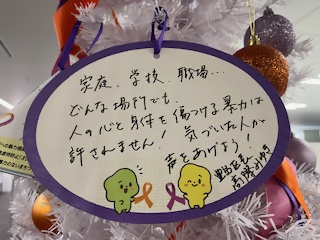 家庭、学校、職場…
どんな場所でも、
人の心と身体を傷つける暴力は
許されません！ 気づいた人が
声をあげよう！